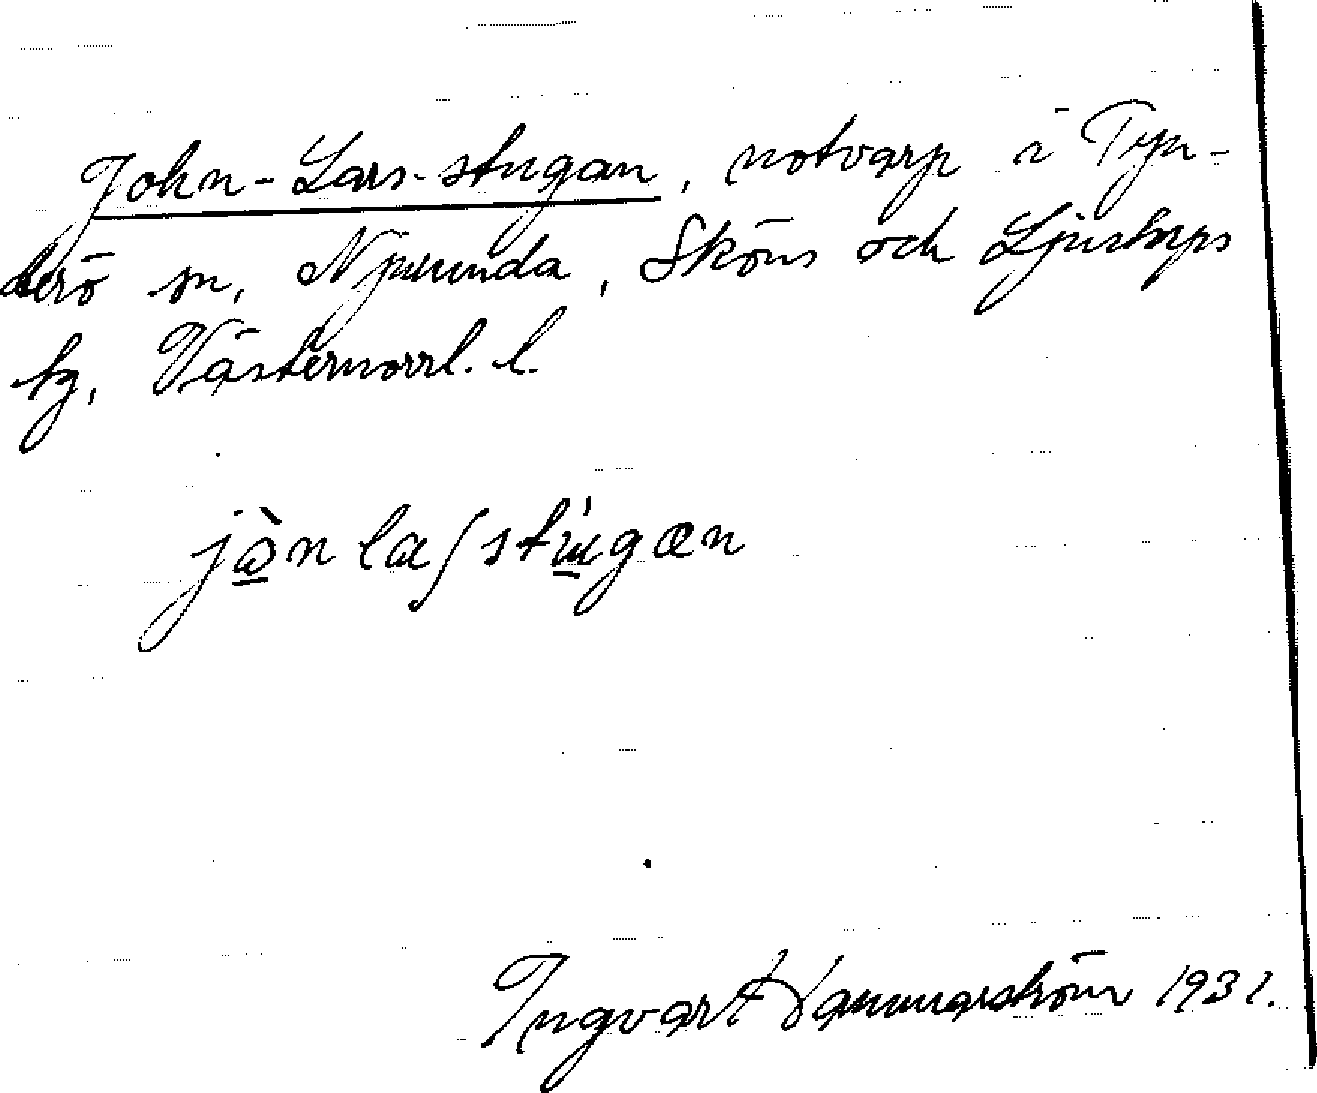 John-Lars-stugan, notvarp i Tyn-
derö sn, Njurunda, Sköns och Ljustorps
tg, Västernorrl. l.
jɷ̀n laʃstúgæn
Ingvar Hammarström 1931.